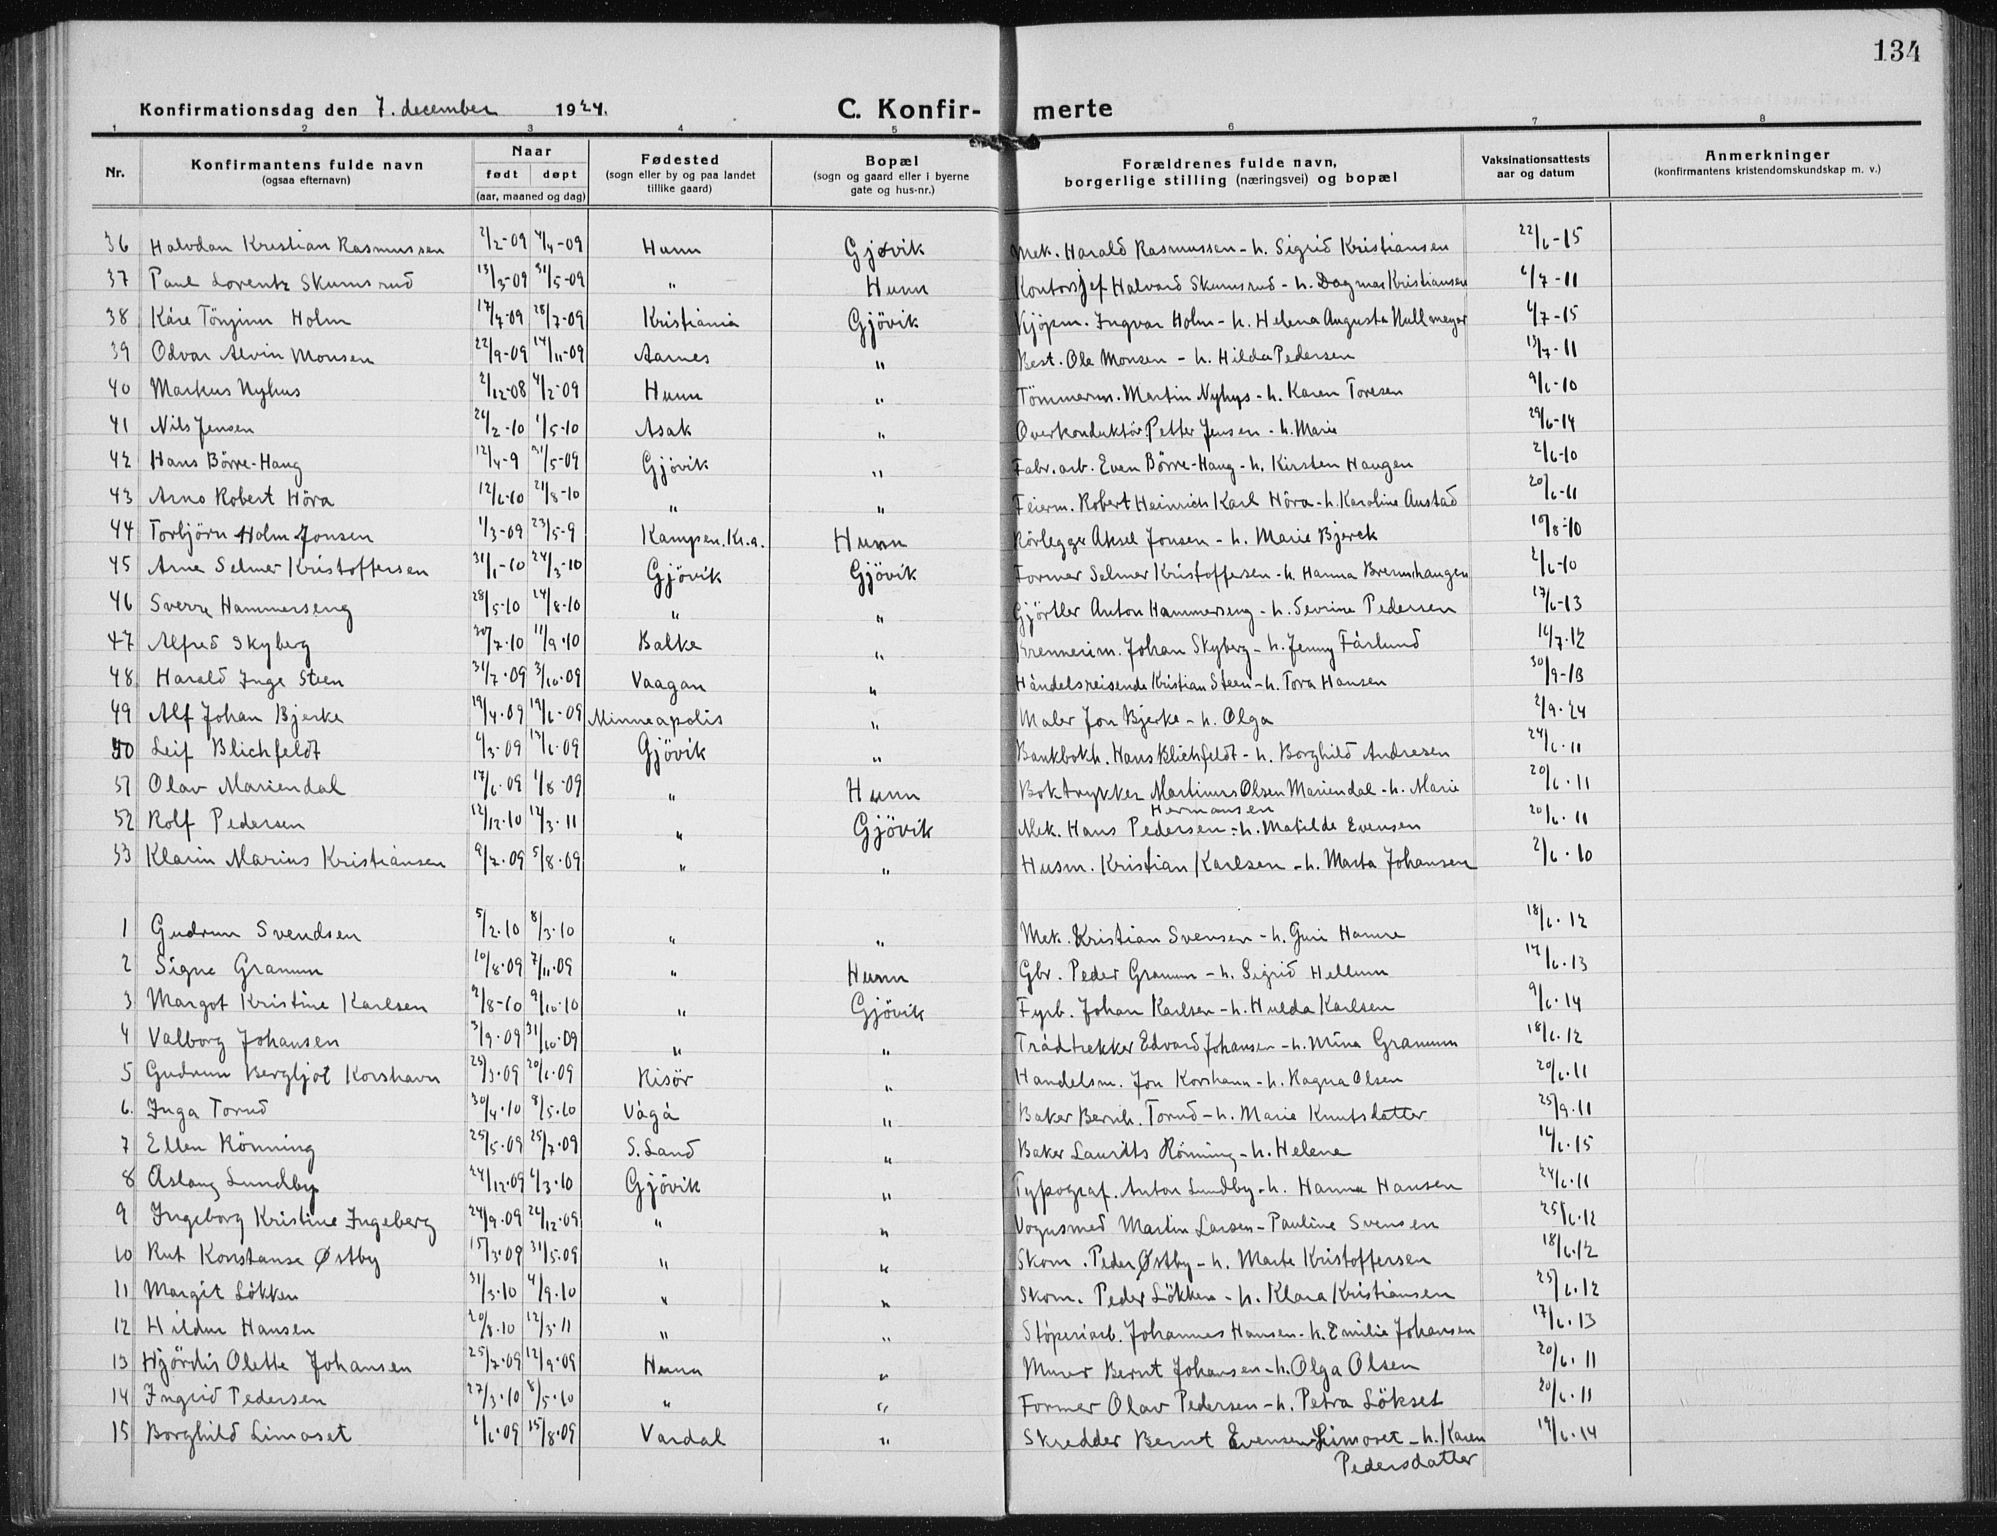 134
Konfirmationsdag den 7. december 1924.
C. Konfir- merte
1 2 3 4 5 6 7 8
Nr. Konfirmantens fulde navn (ogsaa efternavn) Naar født døpt (aar, maaned og dag) Fødested (sogn eller by og paa landet tillike gaard) Bopæl (sogn og gaard eller i byerne gate og hus-nr.) Forældrenes fulde navn, borgerlige stilling (næringsvei) og bopæl Vaksinationsattests aar og datum Anmerkninger (konfirmantens kristendomskundskap m. v.)
36 Halvdan Kristian Rasmussen 2/2-09 4/4-09 Hunn Gjøvik Mek. Harald Rasmussen - h. Sigrid Kristiansen 22/6-15
37 Paul Lorentz Skumsrud 13/3-09 31/5-09 " Hunn Kontorsjef Halvard Skumsrud - h. Dagmar Kristiansen 6/7-11
38 Kåre Tönjinn Holm 17/7-09 28/7-09 Kristiania Gjövik Kjöpm. Ingvar Holm - h. Helena Augusta Hullmeyer 6/7-15
39 Odvar Alvin Monsen 22/9-09 14/11-09 Aarnes " Best. Ole Monsen - h. Hilda Pedersen 13/7-11
40 Markus Nyhus 2/12-08 4/2-09 Hunn " Tömmerm. Martin Nyhus - h. Karen Toresen 9/6-10
41 Nils Jensen 26/2-10 1/5-10 Asak " Overkonduktör Petter Jensen - h. Marie 29/6-14
42 Hans Börre-Haug 12/4-9 31/5-09 Gjövik " Fabr. arb. Even Börre-Haug - h. Kirsten Haugen 2/6-10
43 Arno Robert Höra 12/6-10 21/8-10 " " Feierm. Robert Heinrich Karl Höra - h. Karoline Anstad 20/6-11
44 Torbjörn Holm Jonsen 1/3-09 23/5-9 Kampen. Kr.a. Hunn Rörlegger Aksel Jonsen - h. Marie Bjerck 10/8-10
45 Arne Selmer Kristoffersen 31/1-10 24/3-10 Gjövik Gjövik Former Selmer Kristoffersen - h. Hanna Brennhaugen 2/6-10
46 Sverre Hammerseng 28/5-10 24/8-10 " " Gjörtler Anton Hammerseng - h. Sevrine Pedersen 17/6-13
47 Alfred Skyberg 30/7-10 11/9-10 Balke " Brennerim. Johan Skyberg - h. Jenny Fárlund 16/7-12
48 Harald Inge Steen 31/7-09 3/10-09 Vaagan " Handelsreisende Kristian Steen - h. Tora Hansen 30/9-13
49 Alf Johan Bjerke 19/4-09 19/6-09 Minneapolis " Maler Jon Bjerke - h. Olga 2/9-24
50 Leif Blichfeldt 6/3-09 13/6-09 Gjövik " Bankbokh. Hans Blichfeldt - h. Borghild Andresen 24/6-11
51 Olav Mariendal 17/6-09 1/8-09 " Hunn Boktrykker Martinus Olsen Mariendal - h. Marie
Hermansen 20/6-11
52 Rolf Pedersen 12/12-10 12/3-11 " Gjövik Mek. Hans Pedersen - h. Matilde Evensen 20/6-11
53 Klarin Marius Kristiansen 9/7-09 5/8-09 " " Husm. Kristian Karlsen - h. Marta Johansen 2/6-10
1 Gudrun Svendsen 5/2-10 8/3-10 " " Mek. Kristian Svensen - h. Guri Hamre 18/6-12
2 Signe Granum 10/8-09 7/11-09 " Hunn Gbr. Peder Granum - h. Sigrid Hellum 17/6-13
3 Margot Kristine Karlsen 2/8-10 9/10-10 " Gjövik Fyrb. Johan Karlsen - h. Hulda Karlsen 9/6-14
4 Valborg Johansen 3/9-09 31/10-09 " " Trådtrekker Edvard Johansen - h. Mina Granum 18/6-12
5 Gudrun Bergljot Korshavn 25/3-09 20/6-09 Risör " Handelsm. Jon Korshavn - h. Ragna Olsen 20/6-11
6. Inga Torud 30/4-10 8/5-10 Vågå " Baker Bernh. Torud - h. Marie Knutsdatter 25/9-11
7 Ellen Rönning 25/5-09 25/7-09 S. Land " Baker Laurits Rönning - h. Helene 16/6-15
8 Aslaug Lundby 24/12-09 6/3-10 Gjövik " Typograf. Anton Lundby - h. Hanna Hansen 24/6-11
9 Ingeborg Kristine Ingeberg 24/9-09 26/12-09 " " Vognsmed Martin Larsen - Pauline Svensen 25/6-12
10 Rut Konstanse Østby 15/3-09 31/5-09 " " Skom. Peder Østby - h. Marte Kristoffersen 18/6-12
11 Margit Lökken 31/3-10 4/9-10 " " Skom. Peder Lökken - h. Klara Kristiansen 25/6-12
12 Hildur Hansen 20/8-10 12/3-11 " " Støperiarb. Johannes Hansen - h. Emilie Johansen 17/6-13
13 Hjördis Olette Johansen 25/7-09 12/9-09 Hunn " Murer Bernt Johansen - h. Olga Olsen 20/6-11
14 Ingrid Pedersen 27/3-10 8/5-10 " " Former Olav Pedersen - h. Petra Lökset 20/6-11
15 Borghild Limoset 1/6-09 15/8-09 Vardal " Skredder Bernt Evensen Limoset - h. Karen
Pedersdatter 19/6-14